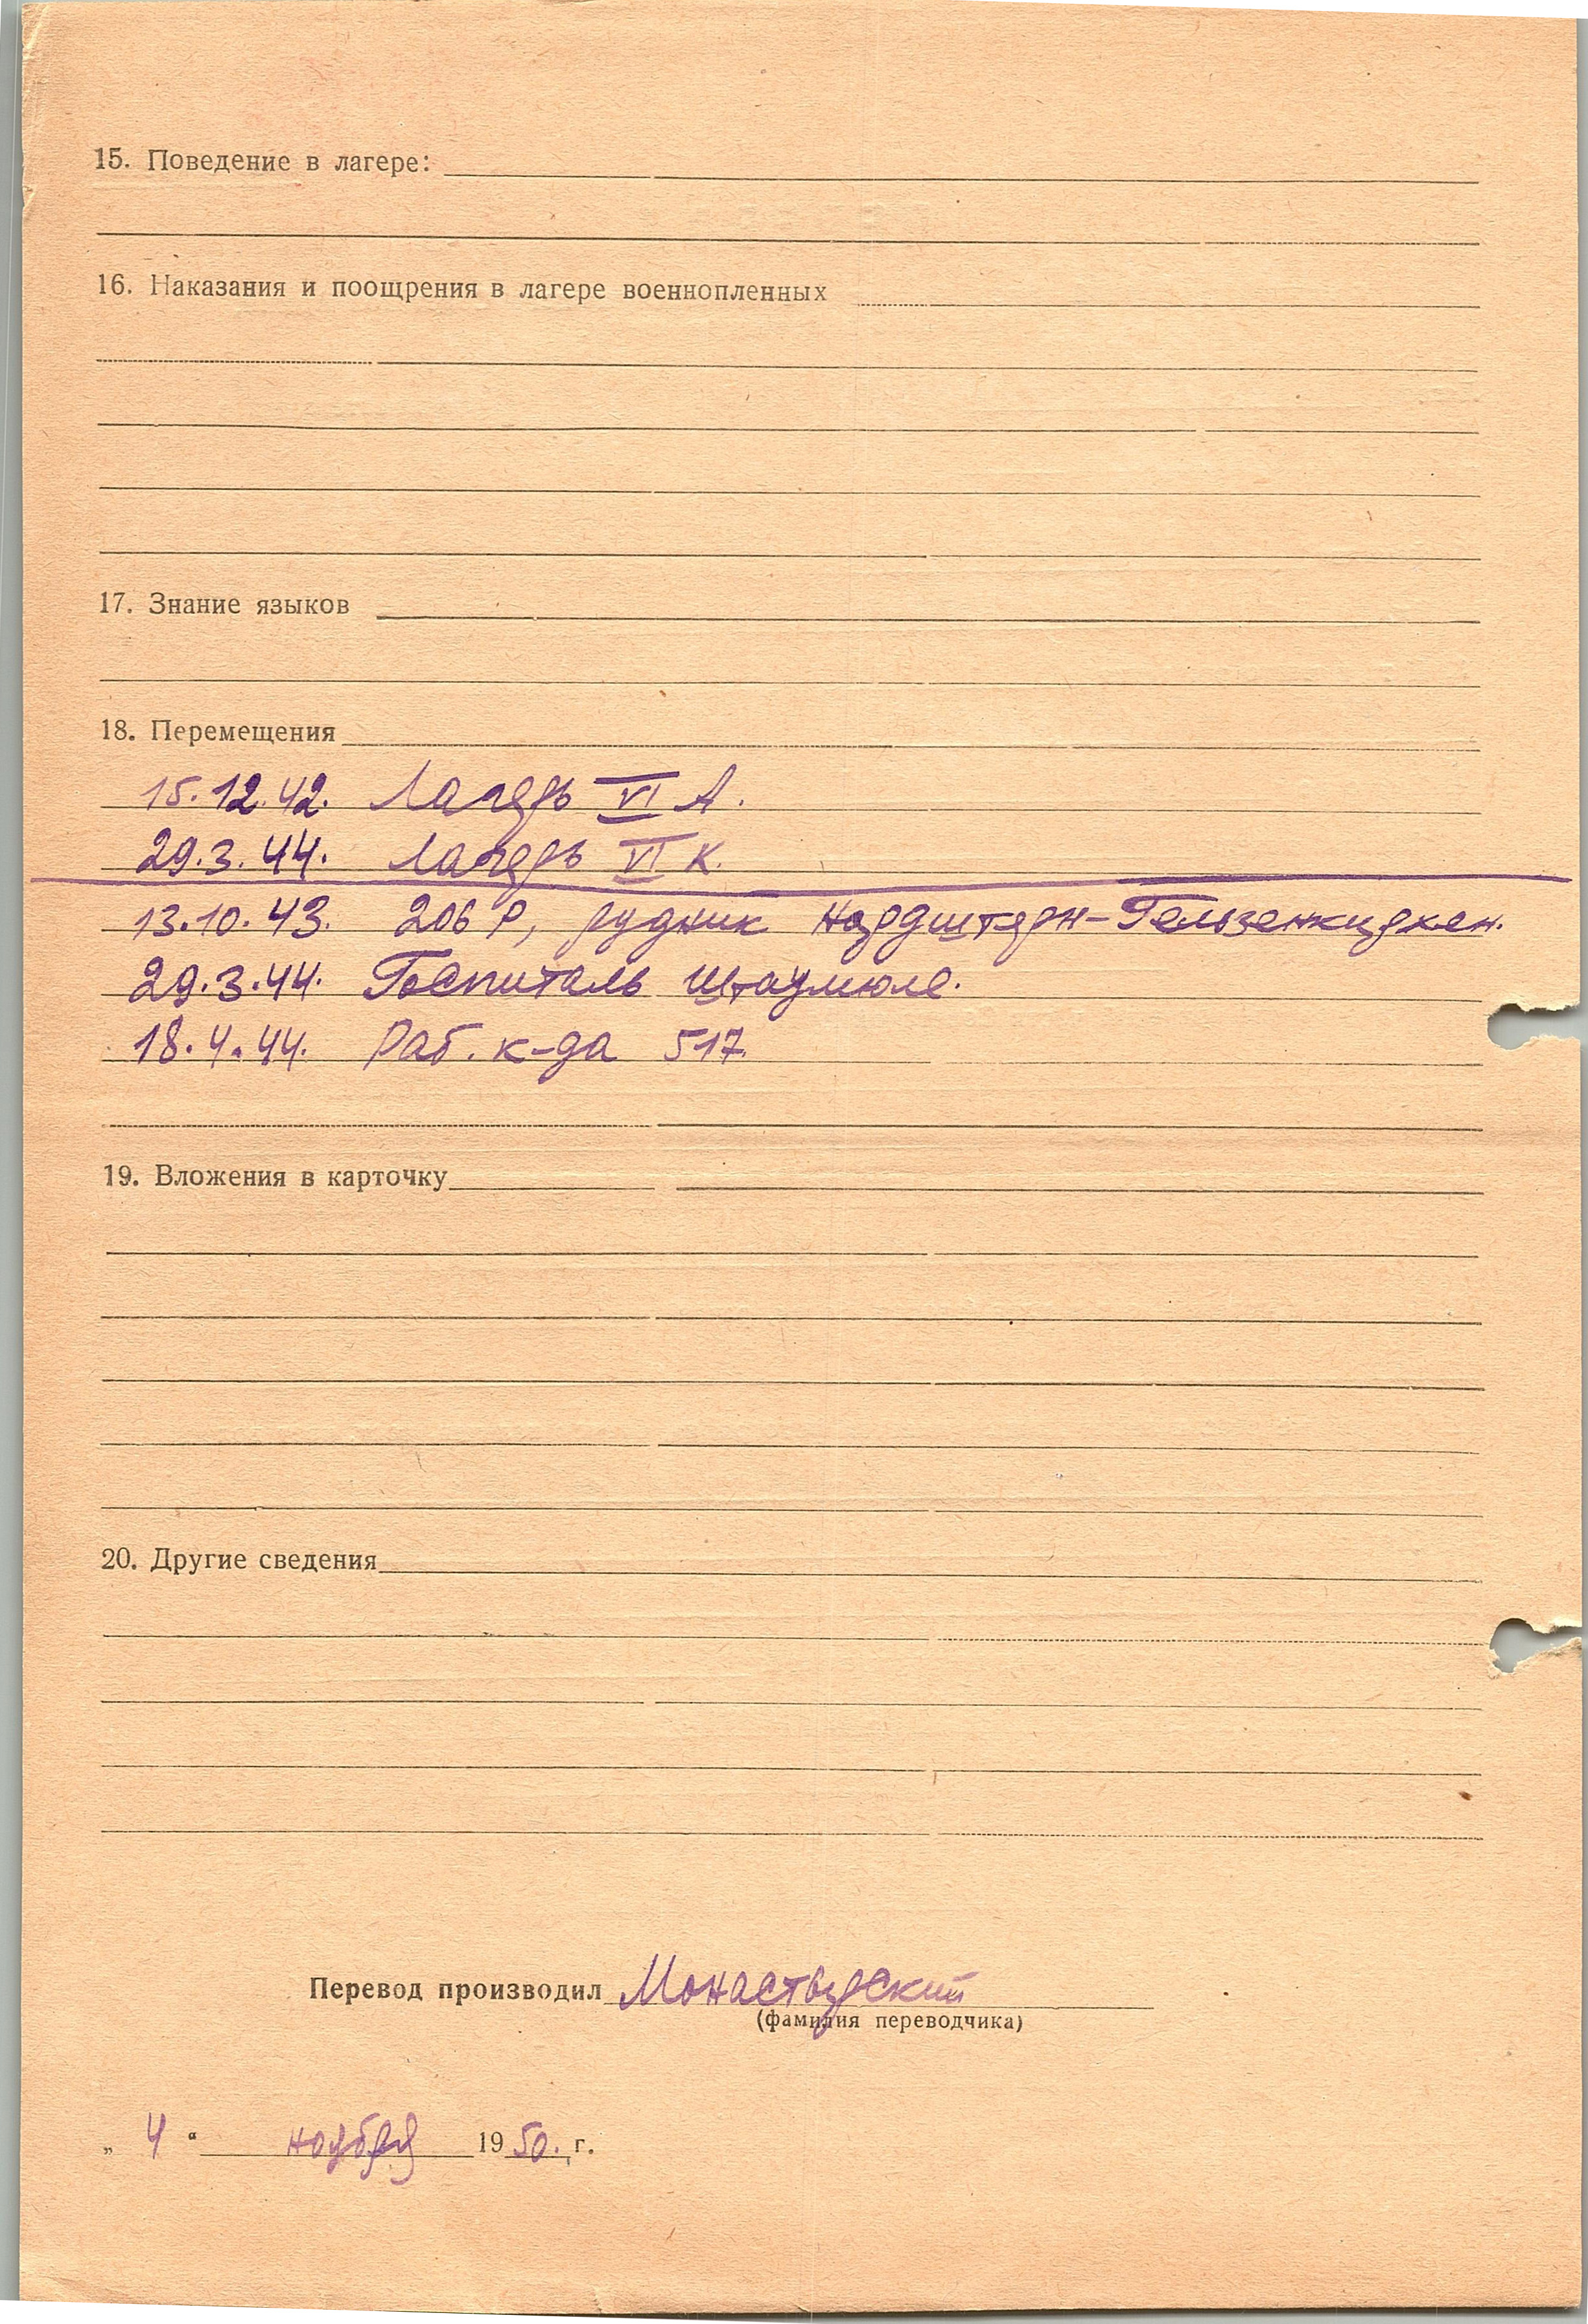 15. Поведение в лагере:
16. Наказания и поощрения в лагере военнопленных
17. Знание языков
18. Перемещения
15.12.42. Лагерь VI А.
29.3.44. Лагерь VI К.
13.10.43. 206 Р, рудник Нордштерн-Гельзенкирхен.
29.3.44. Госпиталь Штаумюле.
18.4.44. Раб. к-да 517.
19. Вложения в карточку
20. Другие сведения
Перевод производил Монастырский
(фамилия переводчика)
„ 4 “ ноября 1950. г.